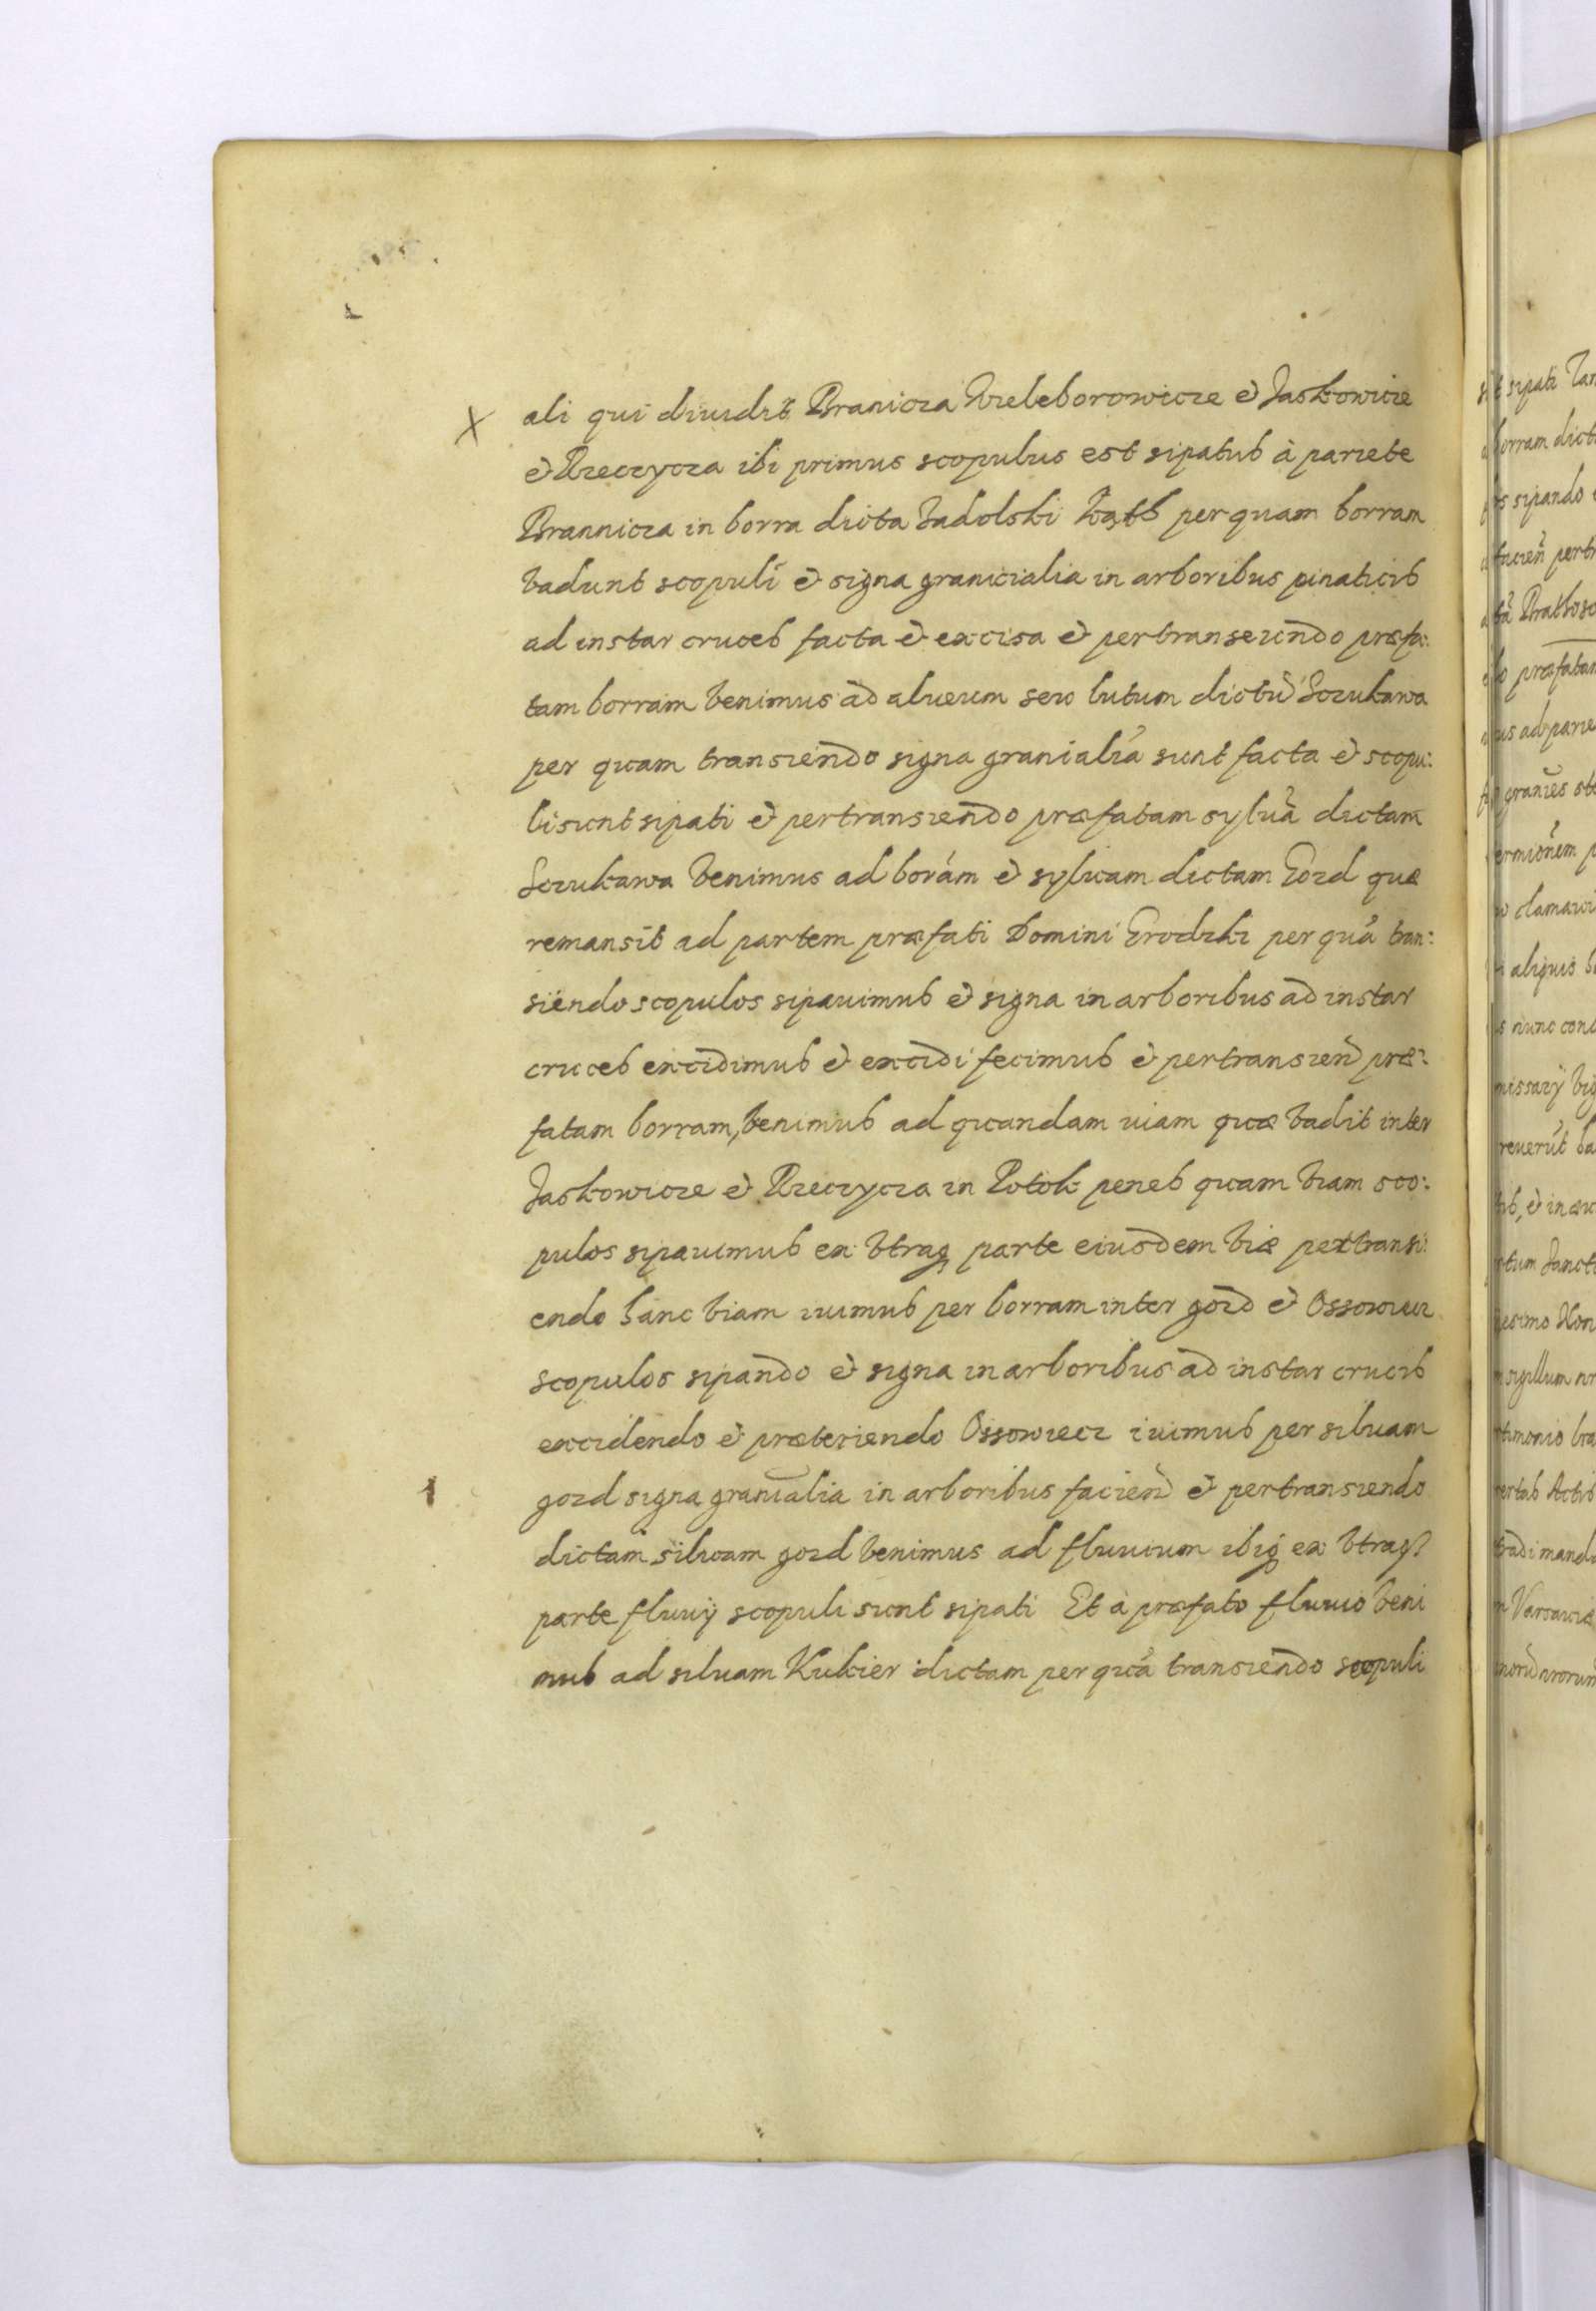 X ali qui diuidit Branicza Wieleborowicze et Jaskowicze
et Rzeczycza ibi primus scopulus est sipatus à pariete
Brannicza in borra dicta Jadolski Kąth per quam borram
vadunt scopuli et signa granicialia in arboribus pinaticis
ad instar cruces facta et excisa et pertranseundo præfa:
tam borram venimus ad alueum seu lutum dictũ Sczukawa
per quam transiendo signa granialia sunt facta et scopu:
li sunt sipati et pertransiendo præfatam syluã dictam
Sczukawa venimus ad borám et syluam dictam Gozd quæ
remansit ad partem præfati Domini Grodzki per quã tran:
siendo scopulos sipauimus et signa in arboribus ad instar
cruces excidimus et excidi fecimus et pertransień præ:
fatam borram, venimus ad quandam uiam quæ vadit inter
Jaskowicze et Rzeczycza in Potok penes quam viam sco:
pulos sipauimus ex vtraq parte eiusdem viæ pertransi:
endo hanc viam iuimus per borram inter gozd et Ossowiec
scopulos sipando et signa in arboribus ad instar crucis
excidendo et præteriendo Ossowiecz iuimus per siluam
gozd signa granialia in arboribus facień et pertransiendo
dictam siluam gozd venimus ad fluuium ibiq ex vtraq
parte fluuij scopuli sunt sipati Et à præfato fluuio veni
mus ad siluam Kukier dictam per quã transiendo scopuli